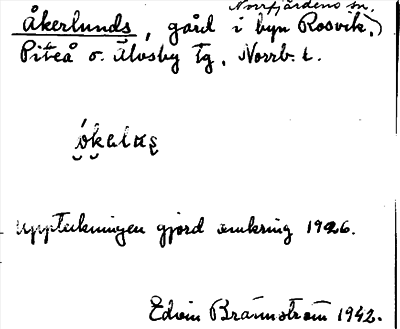 Norrfjärdens sn.
Åkerlunds, gård i byn Rosvik,)
Piteå o. Älvsby tg, Norrb. l.
uppteckningen gjord omkring 1926.
Edvin Brännström 1942.